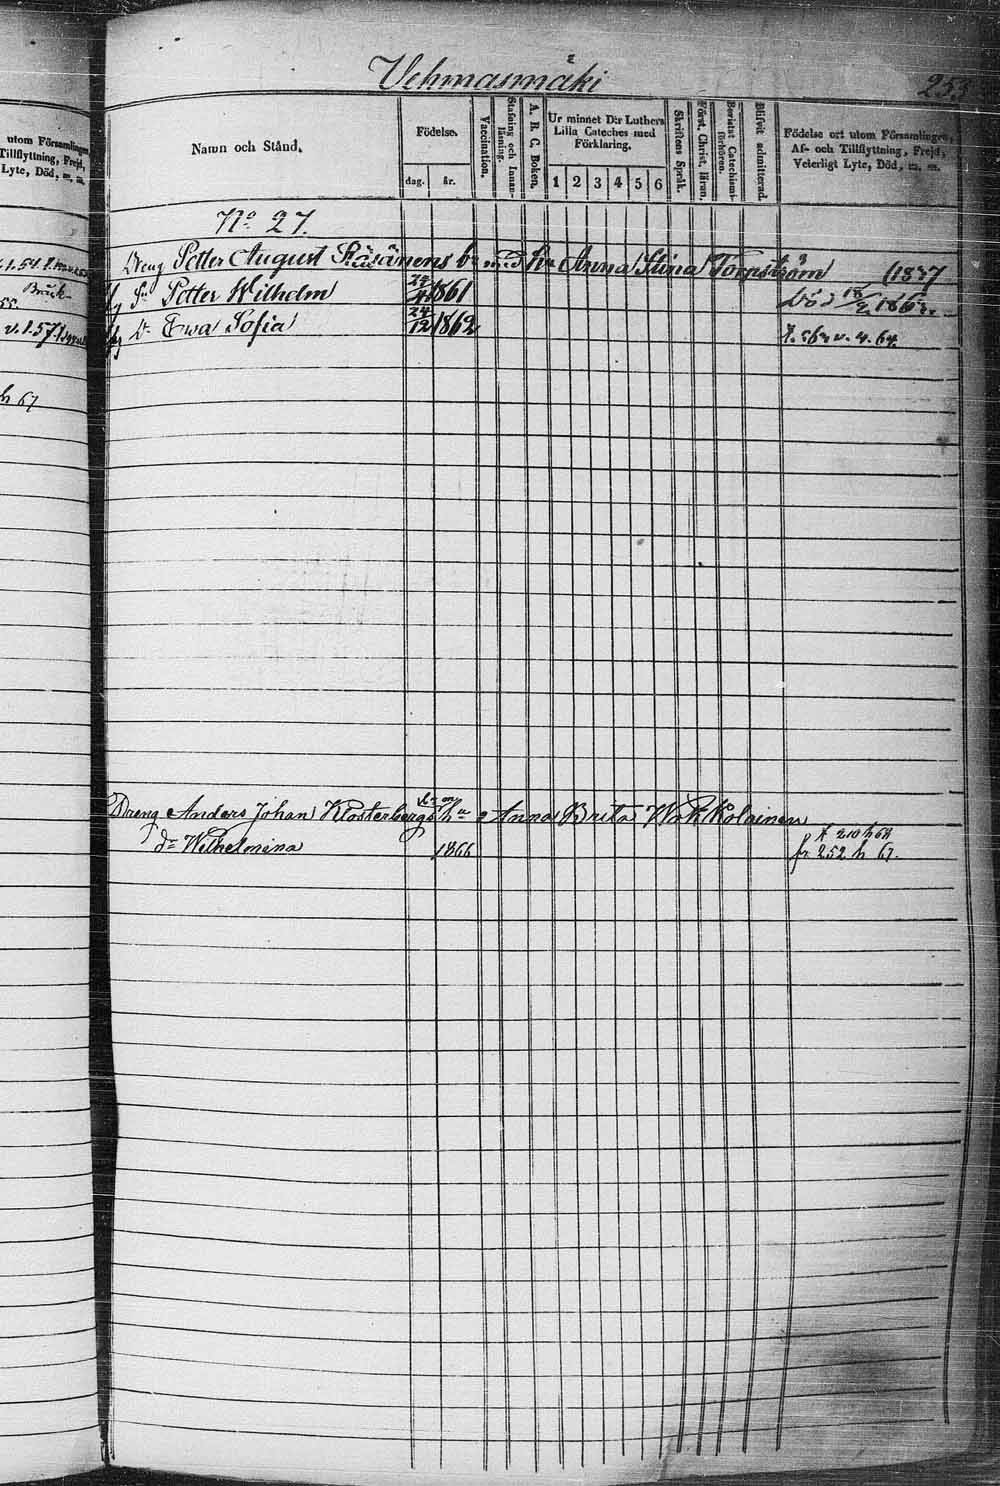 Vehmasmäki
253
utom Församlingen,
Tillflyttning, Frejd,
Lyte, Död, m. m.
Namn och Stånd.
Födelse.
dag. år.
Vaccination.
Stafning och Innanläsning.
A. B. C. Boken.
Ur minnet D:r Luthers
Lilla Cateches med
Förklaring.
1 2 3 4 5 6
Skriftens Språk.
Först. Christ. läran.
Bevistat Catechismi-förhören.
Blifvit admitterad.
Födelse ort utom Församlingen,
Af- och Tillflyttning, Frejd,
Veterligt Lyte, Död, m. m.
No 27.
Dreng Petter August Räsänens b. med hu Anna Stina Törnström (1837
Sn Petter Wilhelm 1861 Död 18/2 1863.
Dr Ewa Sofia 24/12 1862 v. 4. 64.
h 67
Dreng Anders Johan Klosterbergs hu Anna Brita Wokkolainen
210 h 68
dr Wilhelmina 1866 fr 252 h 67.